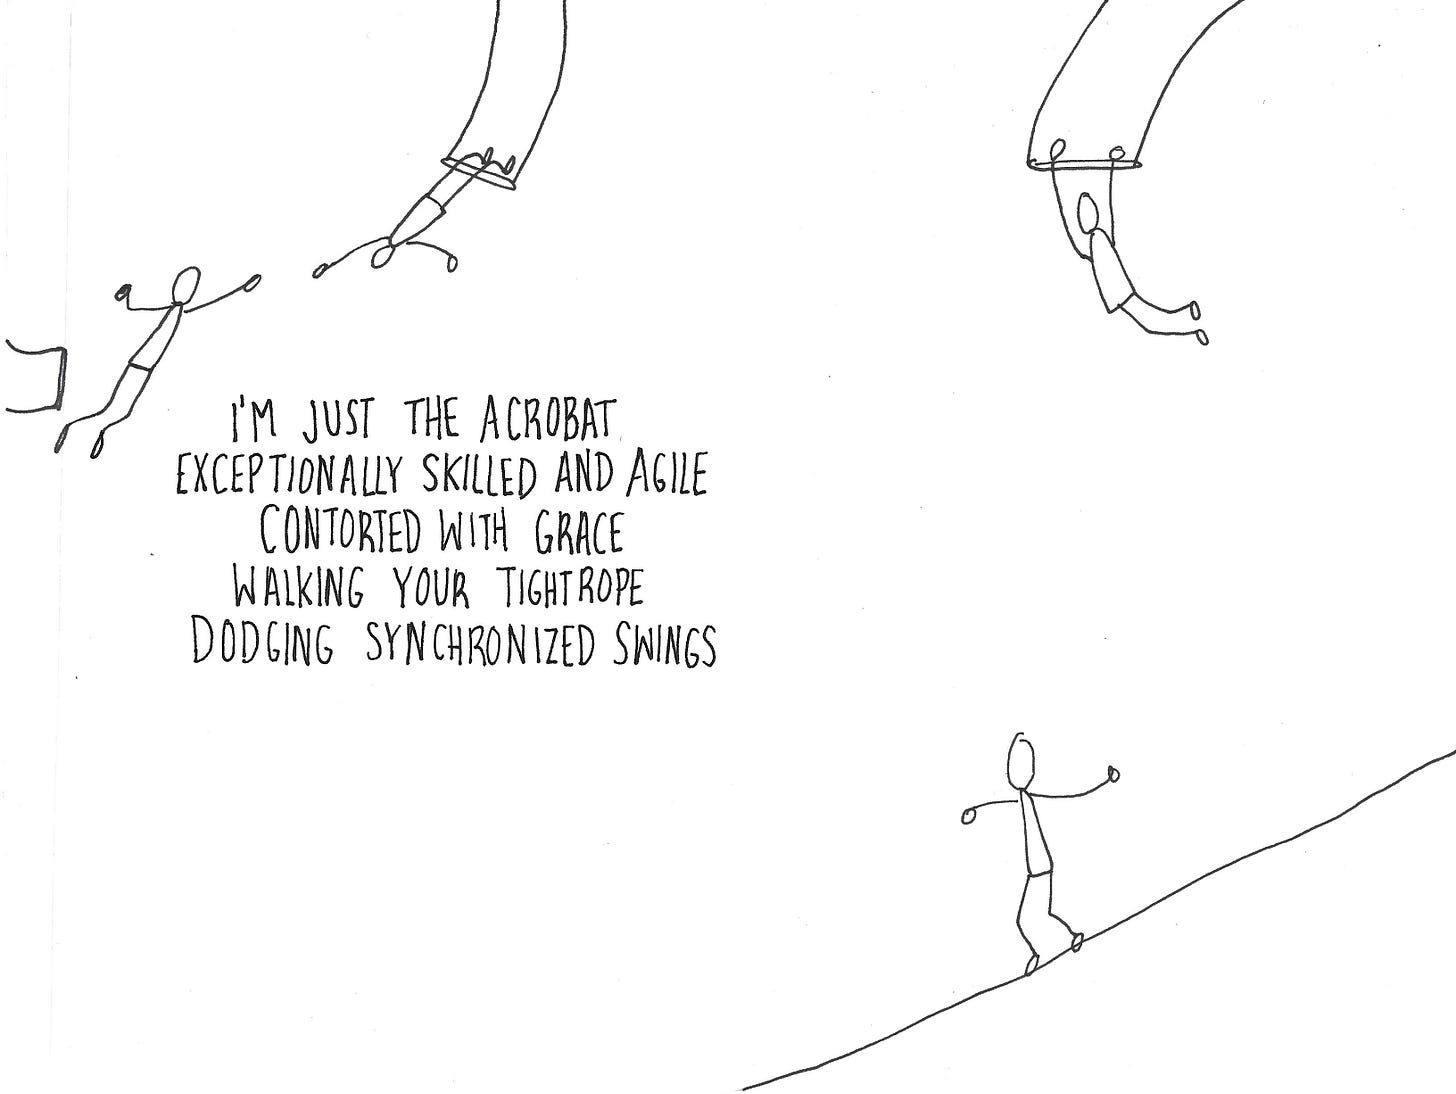 I'M JUST THE ACROBAT
EXCEPTIONALLY SKILLED AND AGILE
CONTORTED WITH GRACE
WALKING YOUR TIGHTROPE
DODGING SYNCHRONIZED SWINGS